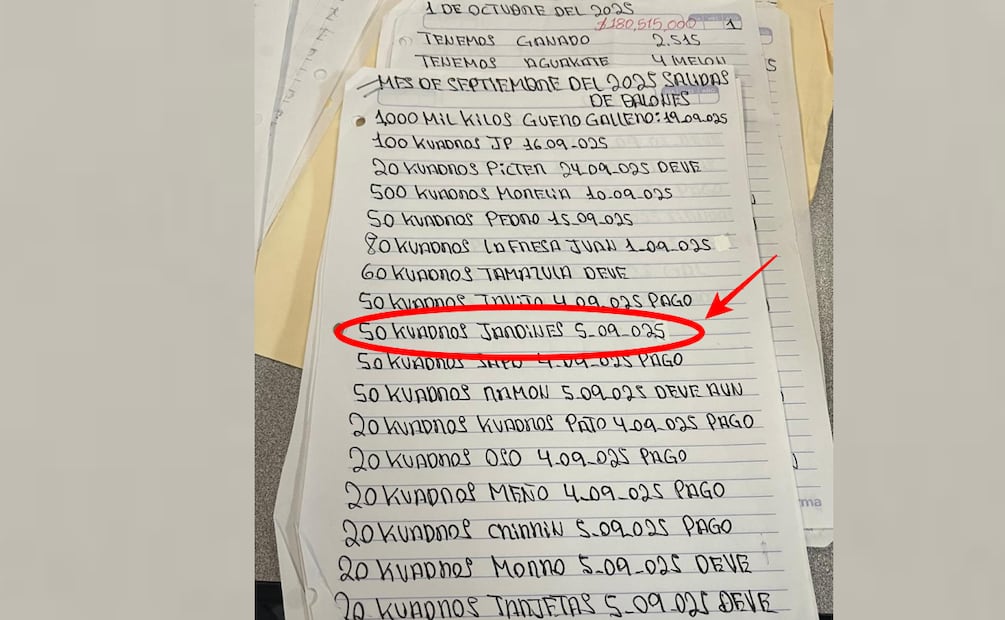 1 DE OCTUBRE DEL 2025
$180,515,000 1
TENEMOS GANADO 2.515
TENEMOS AGUAKATE 4 MELON
MES DE SEPTIEMBRE DEL 2025 SALIDAS
DE BALONES
1000 MIL KILOS GUERO GALLERO: 19.09.025
100 KUADROS JP 16.09_025
20 KUADROS PICTER 24.09_025 DEVE
500 KUADROS MORELIA 10.09_025
50 KUADROS PEDRO 15_09_025
80 KUADROS LA FRESA JUAN 1_09_025
60 KUADROS TAMAZULA DEVE
50 KUADROS 4_09_025 PAGO
50 KUADROS JARDINES 5_09_025
50 KUADROS SAPO 4_09_025 PAGO
50 KUADROS RAMON 5.09.025 DEVE AUN
20 KUADROS KUADROS PATO 4.09_025 PAGO
20 KUADROS OSO 4_09_025 PAGO
20 KUADROS MEÑO 4_09_025 PAGO
20 KUADROS 5_09_025 PAGO
20 KUADROS MORRO 5_09_025 DEVE
20 KUADROS TARJETAS 5_09_025 DEVE
rma